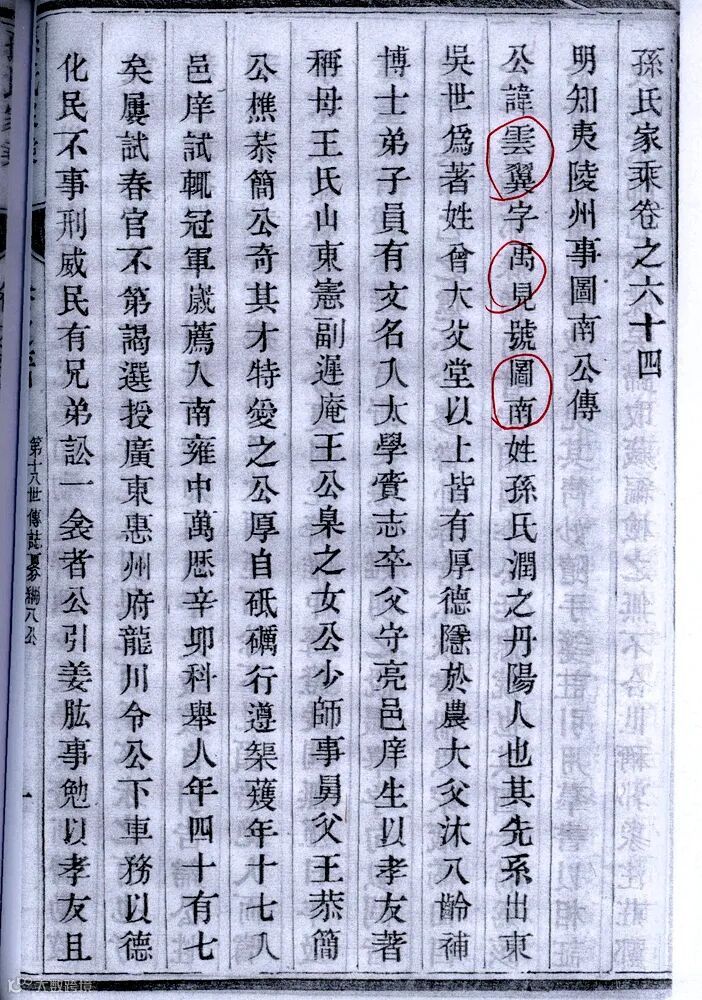 孫氏家乘卷之六十四
明知夷陵州事圖南公傳
公諱雲翼字禹見號圖南姓孫氏潤之丹陽人也其先系出東
吳世爲著姓曾大父堂以上皆有厚德隱於農大父沐八齡補
博士弟子員有文名入太學賫志卒父守亮邑庠生以孝友著
稱母王氏山東憲副遲庵王公臬之女公少師事舅父王恭簡
公樵恭簡公奇其才特愛之公厚自砥礪行遵榘矱年十七入
邑庠試輒冠軍歲薦入南雍中萬歷辛卯科舉人年四十有七
矣屢試春官不第謁選授廣東惠州府龍川令公下車務以德
化民不事刑威民有兄弟訟一衾者公引姜肱事勉以孝友且
第十八世傳誌畧 綱八公
一
大数跨境